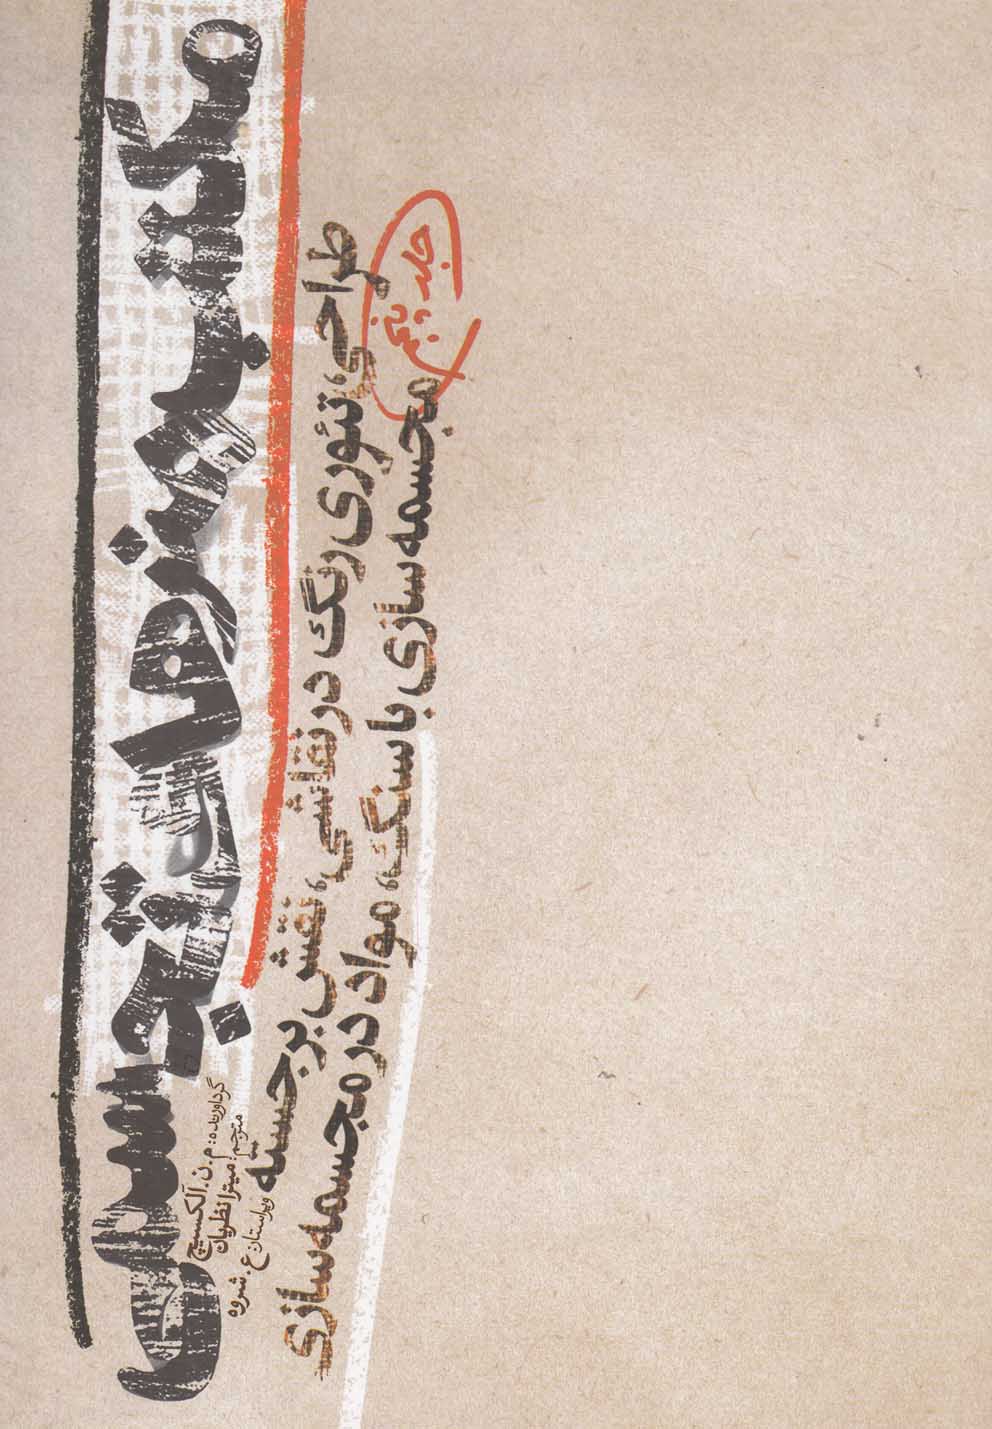 مکتب هنرهای تجسمی
گردآورنده: م.ن. آلکسیچ
مترجم: میترا نظریان
ویراستار: ع. شروه
طراحی، تئوری رنگ در نقاشی، نقش برجسته
مجسمه سازی با سنگ، مواد در مجسمه سازی
جلد پنجم